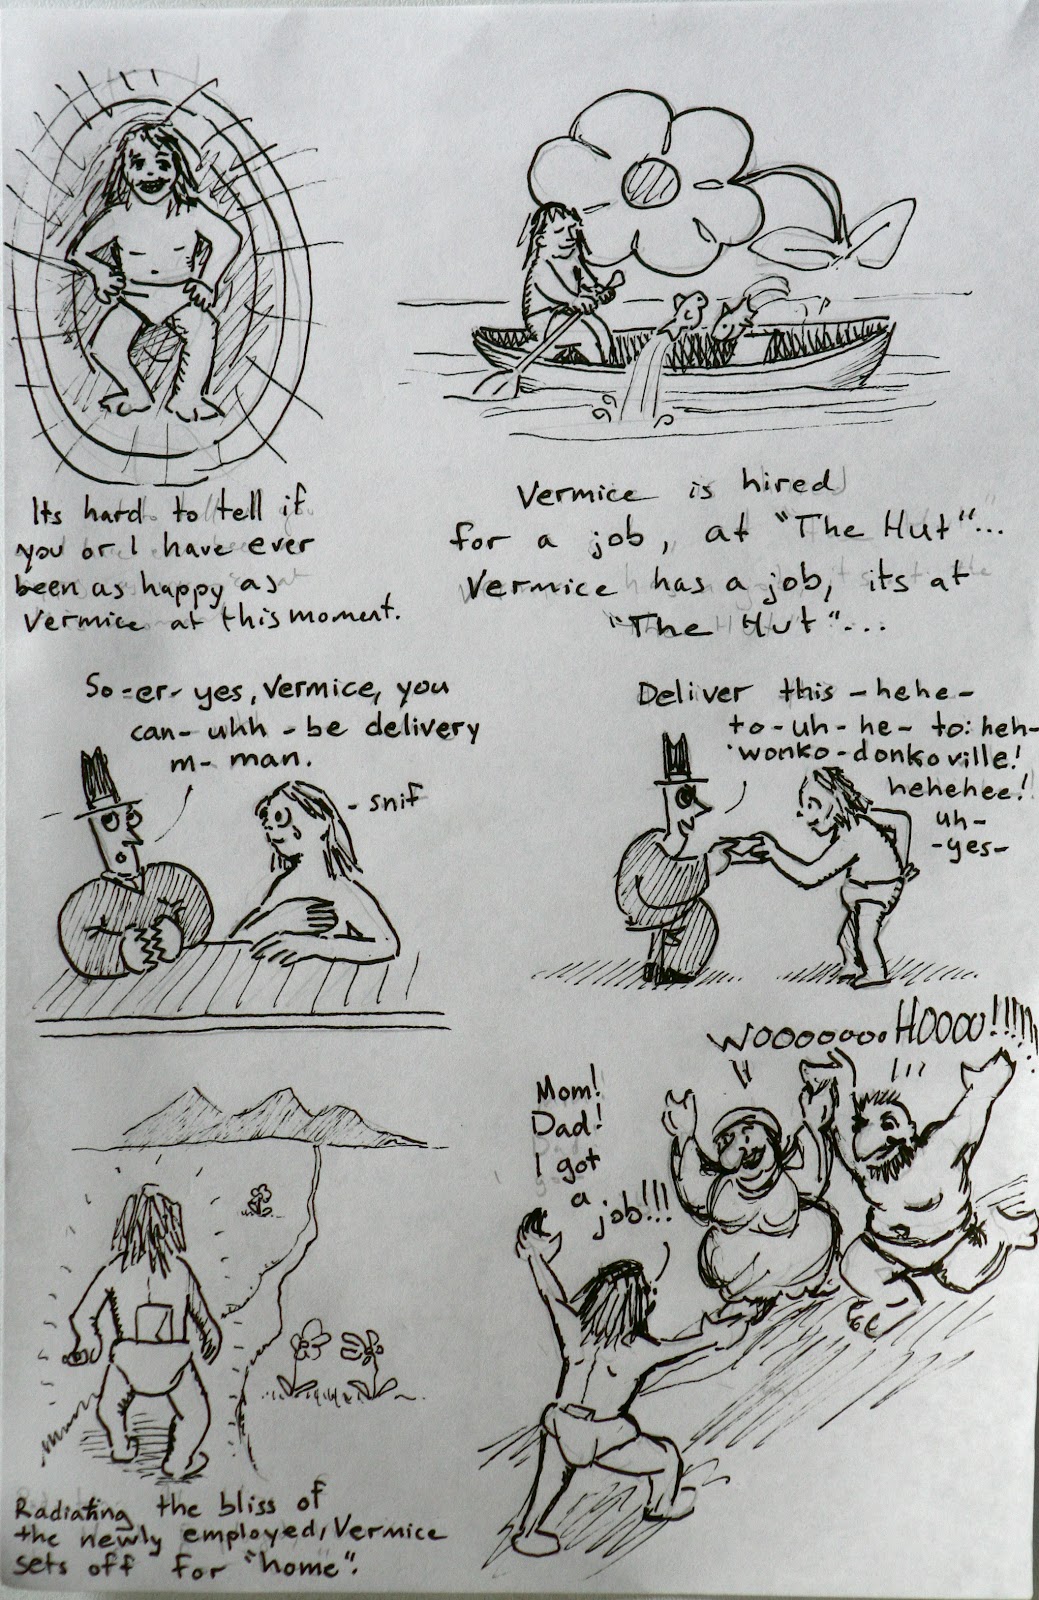 Its hard to tell if
you or I have ever
been as happy as
Vermice at this moment.
Vermice is hired
for a job, at "The Hut"...
Vermice has a job, its at
"The Hut"...
So-er- yes, Vermice, you
can- uhh - be delivery
m- man.
- snif
Deliver this - hehe -
to - uh - he - to: heh-
wonko-donkoville!
hehehee!
uh-
-yes-
Radiating the bliss of
the newly employed, Vermice
sets off for "home".
Mom!
Dad!
I got
a
job!!!
WOOOOOOOO HOOOO!!!!!